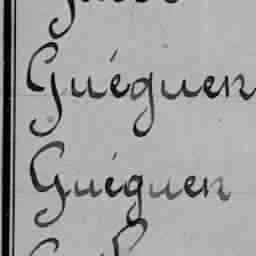 Guéguen
Guéguen